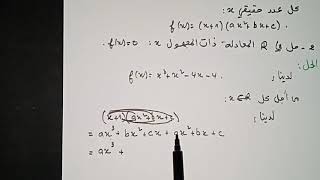 كل عدد حقيقي x:
f(x)=(x+1)(ax²+bx+c).
- حل في ℝ المعادلة ذات المجهول x: f(x)=0.
الحل:
لدينا: f(x)=x³+x²-4x-4.
من أجل كل x∈ℝ
لدينا:
(x+1)(ax²+bx+c)
= ax³+bx²+cx+ax²+bx+c
= ax³+